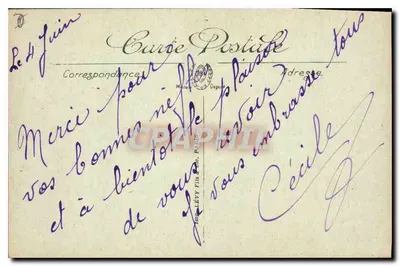 Le 4 Juin
Carte Postale
Correspondance
Adresse
Merci pour
vos bonnes
et à bientôt le plaisir
de vous revoir
Je vous embrasse tous
Cécile